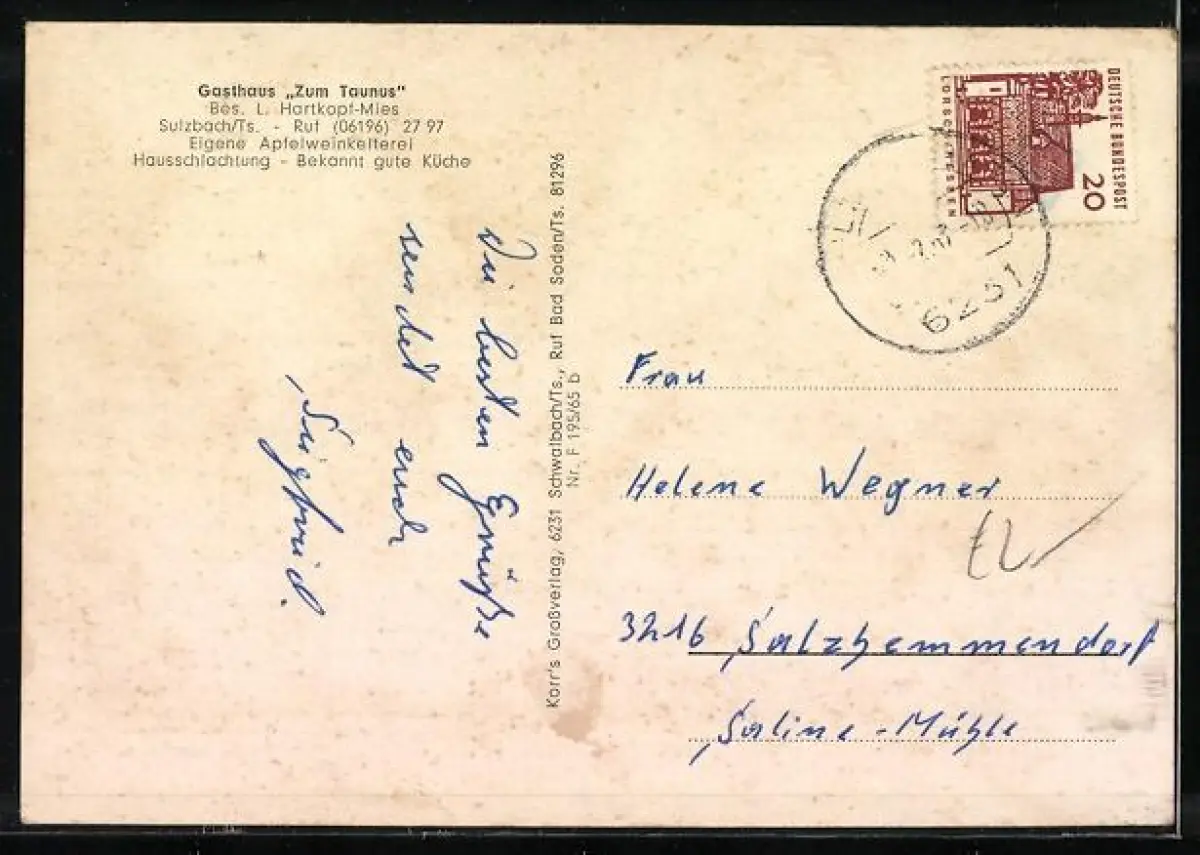 Gasthaus „Zum Taunus"
Bes. L. Hartkopf-Mies
Sulzbach/Ts. - Ruf (06196) 27 97
Eigene Apfelweinkelterei
Hausschlachtung - Bekannt gute Küche
Die besten Grüße
sendet euch
Siegfried.
Korr's Großverlag, 6231 Schwalbach/Ts., Ruf Bad Soden/Ts. 81296
Nr. F 195/65 b
DEUTSCHE BUNDESPOST
20
LORSCH/HESSEN
6231
Frau
Helene Wegner
3216 Salzhemmendorf
Saline-Mühle